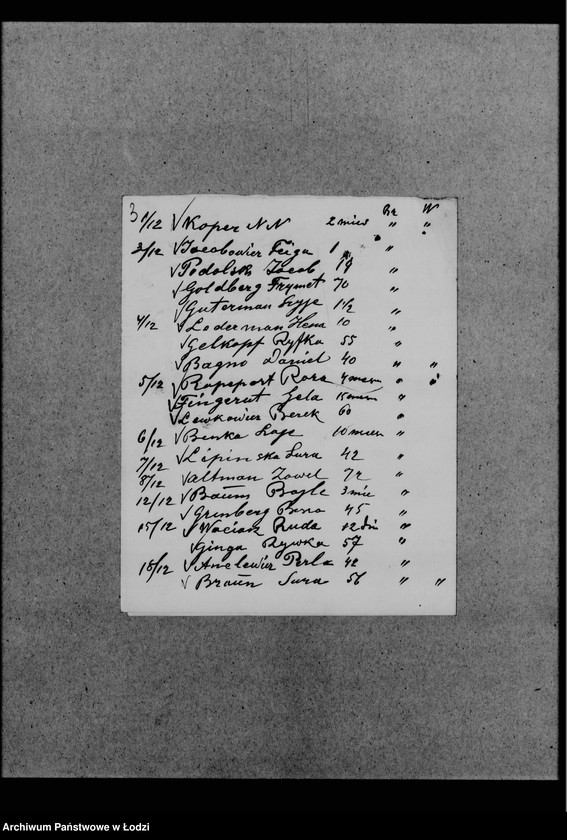 3
Bz W
1/12 √ Koper NN 2 mies " "
3/12 √ Jacobowicz Fajga 1 "
√ Podolski Jacob 19 "
√ Goldberg Frymet 70 "
√ Guterman 1 1/2 "
4/12 √ Loderman Hena 10 "
√ Gelkopf Ryfka 55 "
√ Bagno Daniel 40 " "
5/12 √ Rapeport Rora "
√ Fingerut Gela "
√ Lewkowicz Berek 60 "
6/12 √ Benka 10 "
7/12 √ Lipinska Sura 42 "
8/12 √ altman Zawel 72 "
12/12 √ Baum Bajle 3 mie "
√ Grinberg 45 "
15/12 √ Ruda 12 dni "
√ Ginga Rywka 57 "
18/12 √ Anclewicz Perla 42 "
√ Braun Sura 56 " "
Archiwum Państwowe w Łodzi